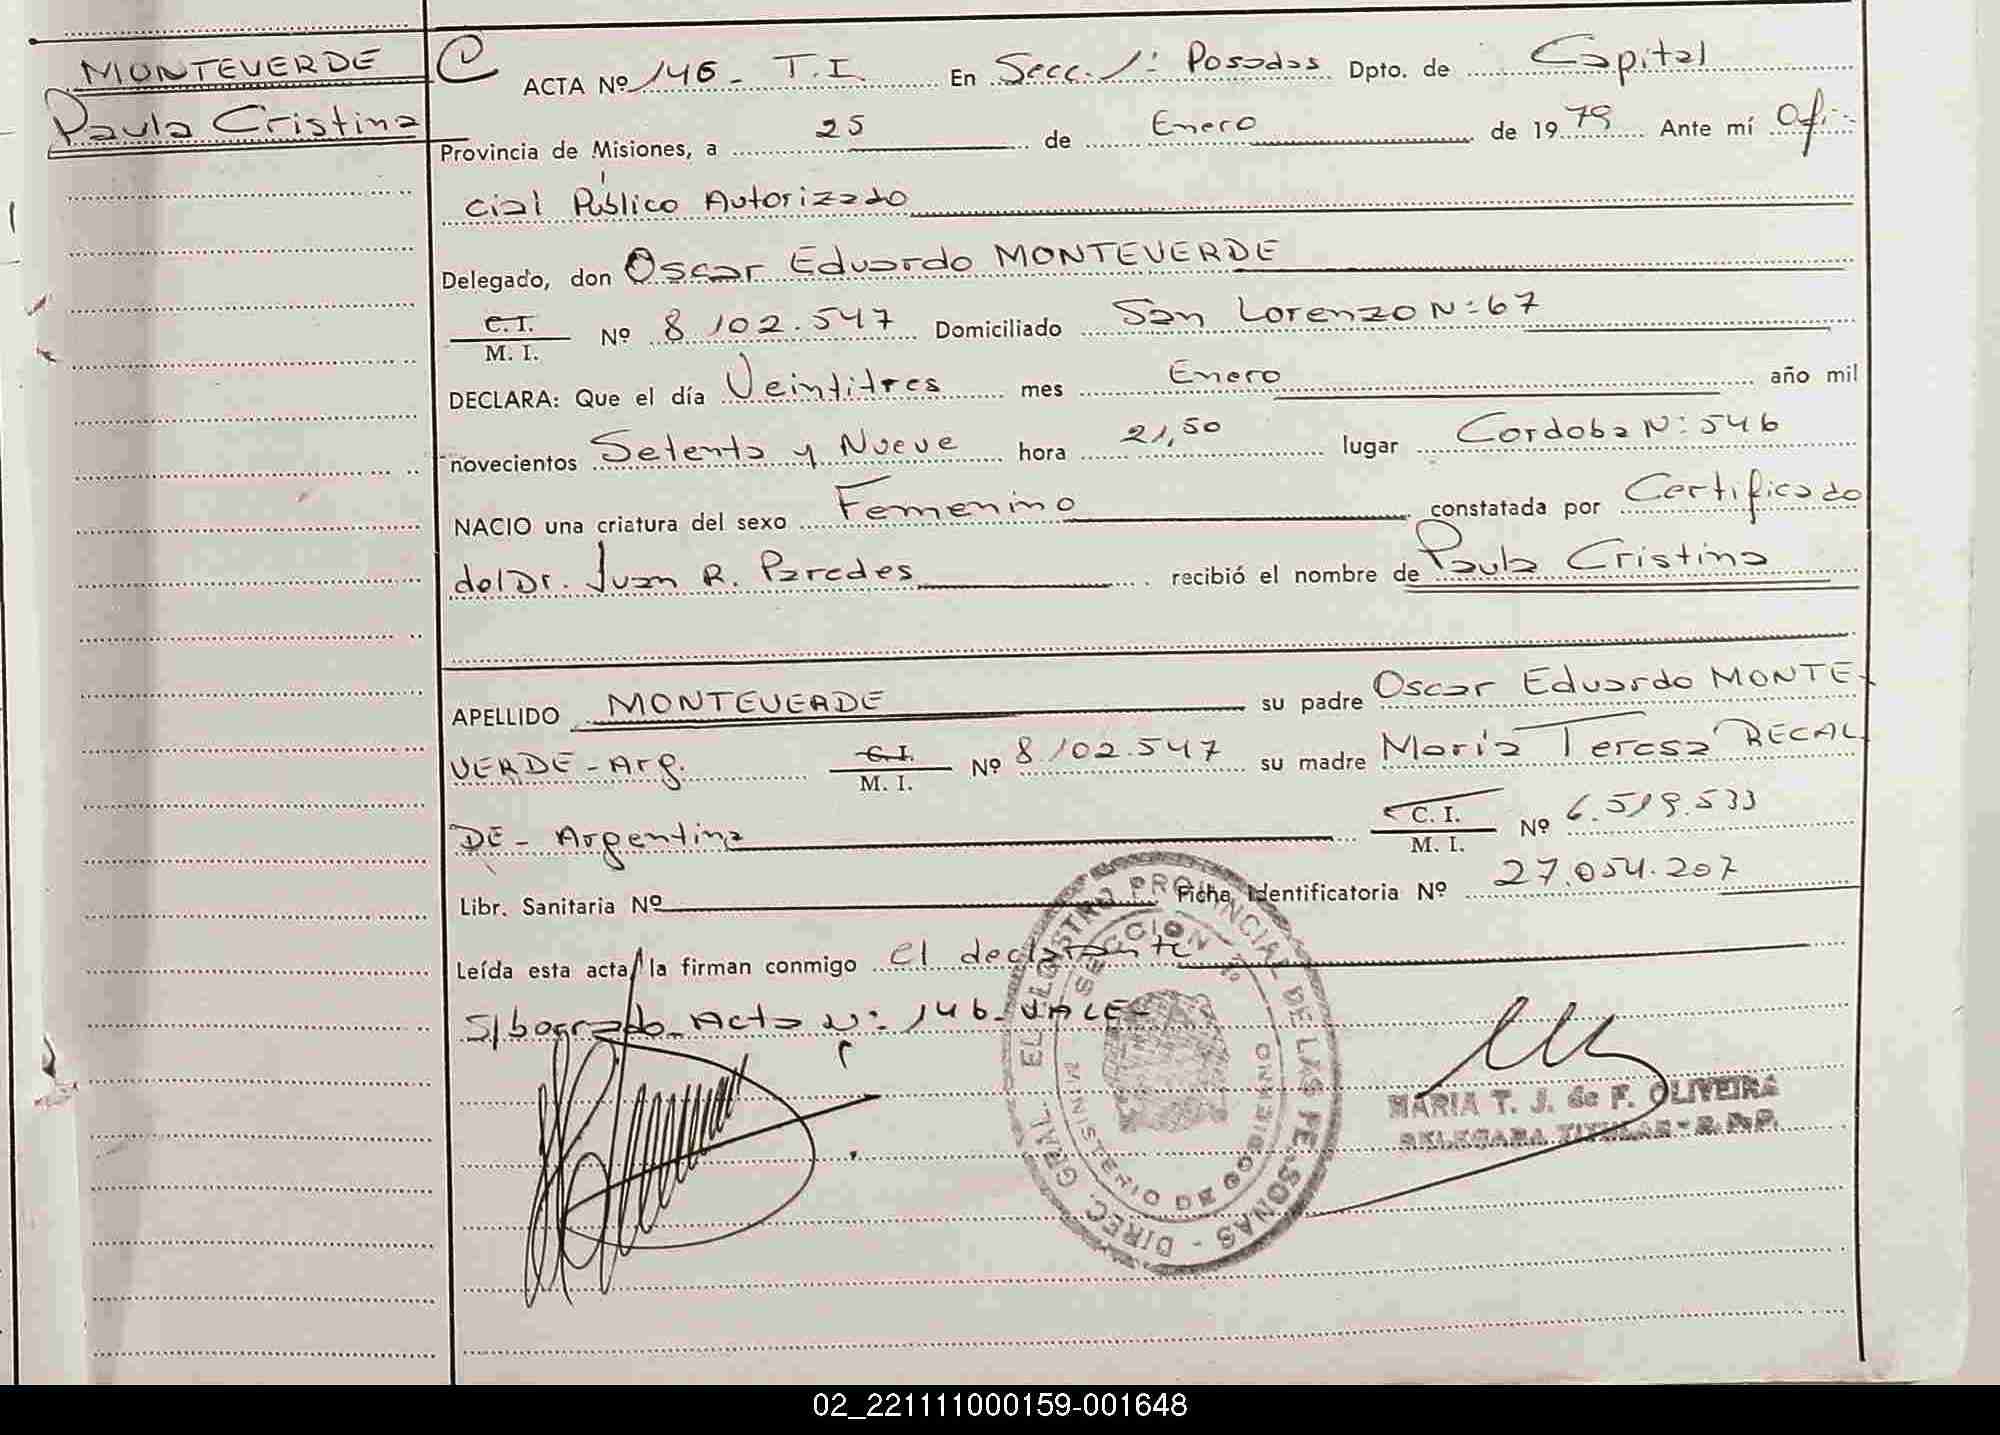 MONTEVERDE
Paula Cristina
C ACTA Nº 146 - T.I. En Secc. 1: Posadas Dpto. de Capital
Provincia de Misiones, a 25 de Enero de 1979 Ante mí Ofi-
cial Público Autorizado
Delegado, don Oscar Eduardo MONTEVERDE
C.I. / M. I. Nº 8.102.547 Domiciliado San Lorenzo N: 67
DECLARA: Que el día Veintitres mes Enero año mil
novecientos Setenta y Nueve hora 21,50 lugar Cordoba N: 546
NACIO una criatura del sexo Femenino constatada por Certificado
del Dr. Juan R. Paredes recibió el nombre de Paula Cristina
APELLIDO MONTEVERDE su padre Oscar Eduardo MONTE-
VERDE - Arg. C.I. / M. I. Nº 8.102.547 su madre Maria Teresa RECAL
DE - Argentina C.I. / M. I. Nº 6.519.533
Libr. Sanitaria Nº Ficha Identificatoria Nº 27.054.207
Leída esta acta, la firman conmigo el declarante
S/borrado Acta N: 146 - VALE -
DIREC. GRAL. EL REGISTRO PROVINCIAL DE LAS PERSONAS -
SECCION 1º
MINISTERIO DE GOBIERNO
MARIA T. J. de F. OLIVEIRA
DELEGADA TITULAR - R. P. P.
02_221111000159-001648